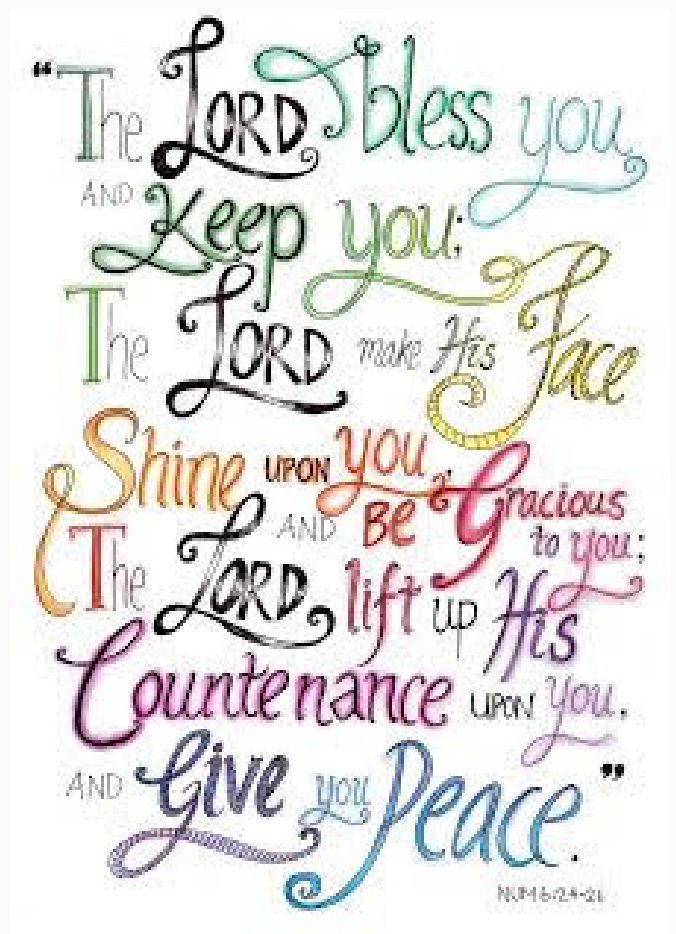 “The LORD bless you
AND Keep you;
The LORD make His Face
Shine UPON you
AND BE Gracious
to you;
The LORD lift up His
Countenance UPON you.
AND Give you Peace.”
NUM 6:24-26